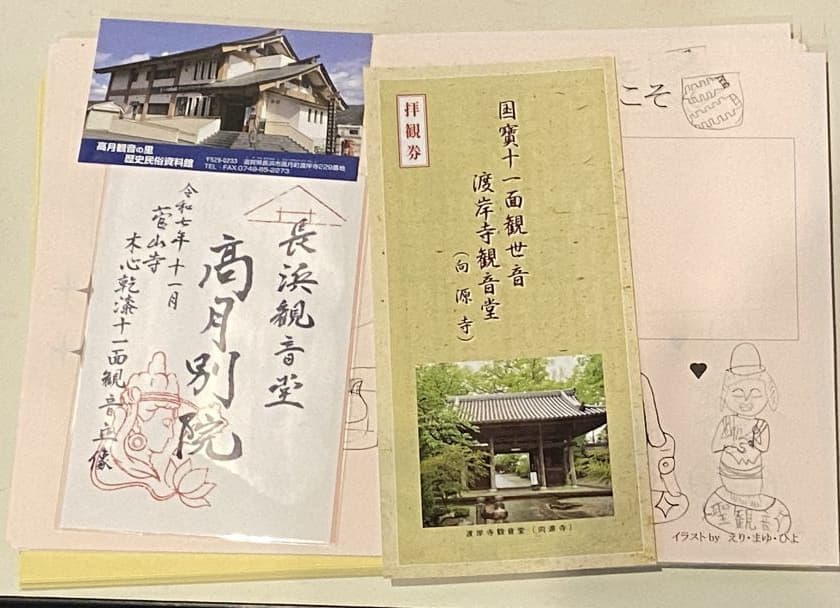 高月観音の里
歴史民俗資料館
〒529-0233 滋賀県長浜市高月町渡岸寺229番地
TEL・FAX 0749-85-2273
長浜観音堂
高月別院
令和七年十一月
菅山寺
木心乾漆十一面観音立像
拝観券
国寳十一面観世音
渡岸寺観音堂
(向源寺)
渡岸寺観音堂(向源寺)
こそ
聖観音
イラスト by えり・まゆ・ひよ